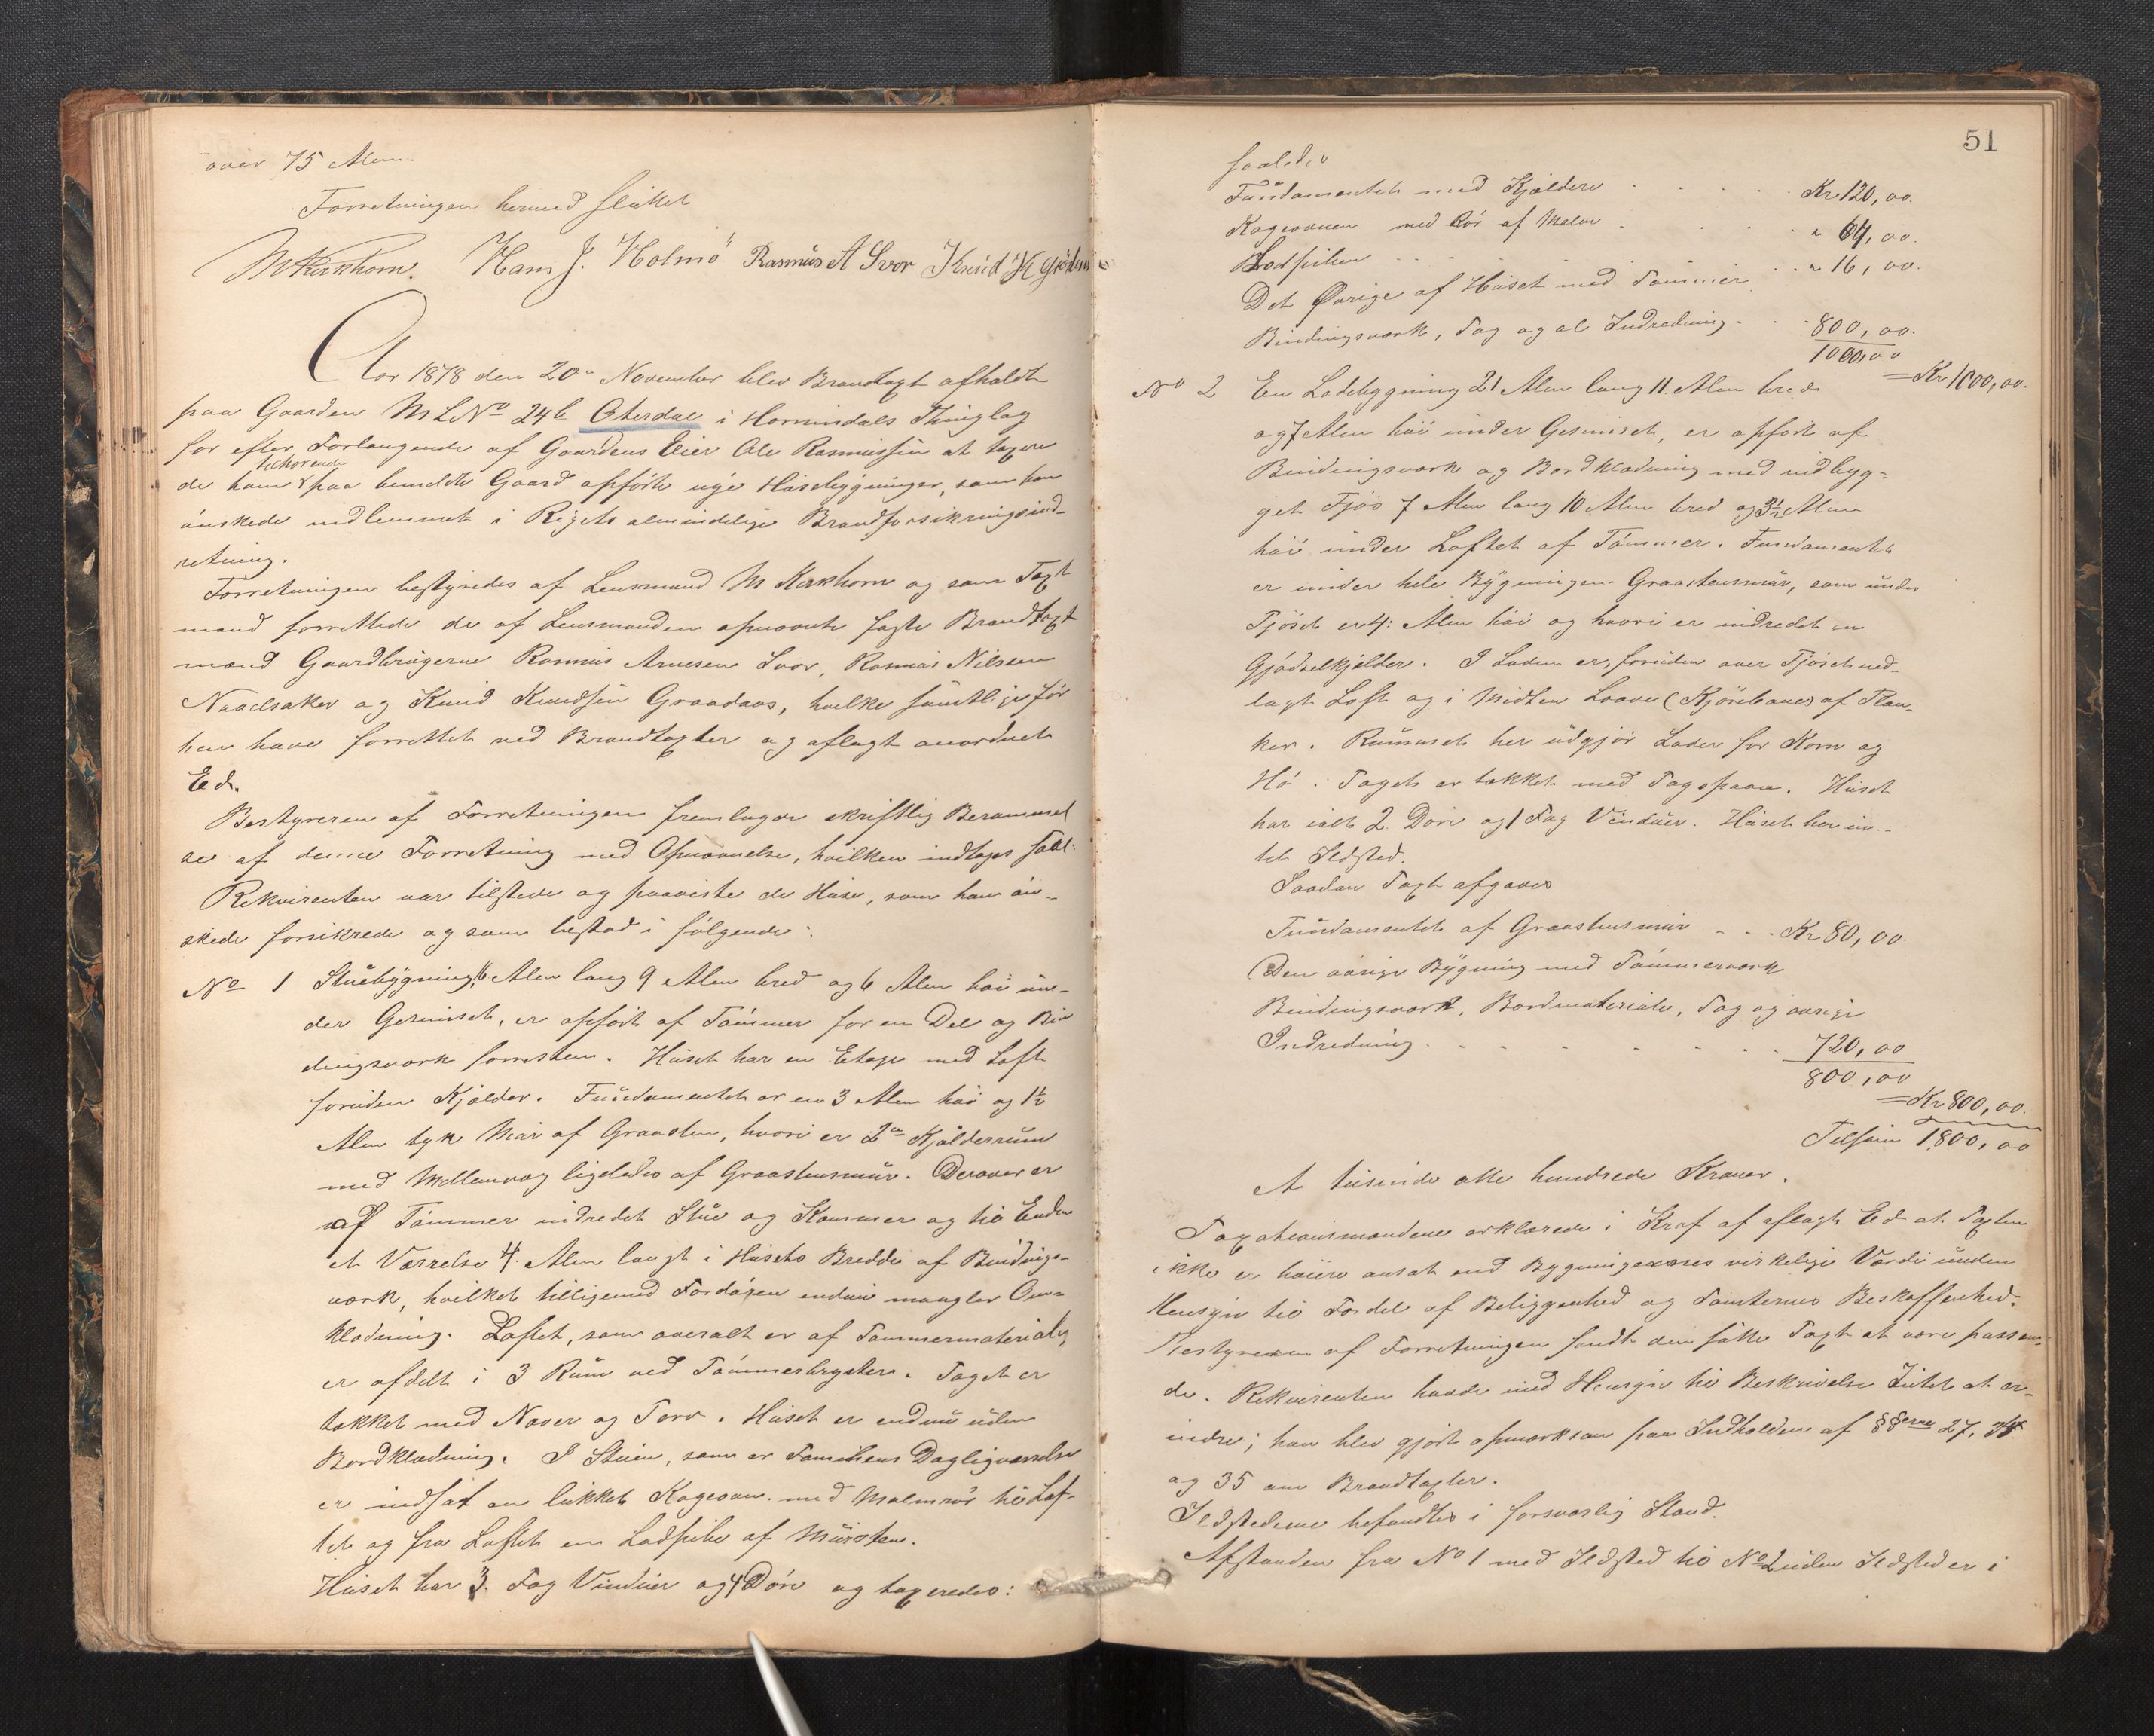 over 75 Alen.
Forretningen hermed sluttet
M Kirkhorn. Hans J. Holmö Rasmus A Svor Knud K
Aar 1878 den 20de November blev Brandtaxt afholdt
paa Gaarden M L No 24b Oterdal i Hornindals Thinglag
for efter Forlangende af Gaardens Eier Ole Rasmussen at taxere
de ham tilhørende paa bemeldte Gaard opførte nye Husebygninger, som han
ønskede indlemmet i Rigets almindelige Brandforsikringsind-
retning.
Forretningen bestyredes af Lensmand M Kirkhorn og som Taxt
mænd forrettede de af Lensmanden opnævnte faste Brandtaxt
mænd Gaardbrugerne Rasmus Arnesen Svor, Rasmus Nilssen
Naadsaker og Knud Knudsen Graadaas, hvilke samtlige før
hen have forrettet ved Brandtaxter og aflagt anordnet
Ed.
Bestyreren af Forretningen fremlagde skriftlig Berammel
se af denne Forretning med Opnævnelse, hvilken indtages saal:
Rekvirenten var tilstede og paaviste de Huse, som han øn-
skede forsikrede og som bestod i følgende:
No 1 Stuebygning, 16 Alen lang 9 Alen bred og 6 Alen høi un-
der Gesimset, er opført af Tømmer for en Del og Bin
dingsværk forresten. Huset har en Etage med Loft
foruden Kjelder. Fundamentet er en 3 Alen høi og 1½
Alen tyk Mur af Graasten, hvori er 2de Kjelderrum
med Mellemvæg ligeledes af Graastensmur. Derover er
af Tømmer indredet Stue og Kammer og til Enden
et Værelse 4 Alen langt i Husets Bredde af Bindings-
værk, hvilket tilligemed Fordøren endnu mangler Om-
klædning. Loftet, som overalt er af Tømmermateriale,
er afdelt i 3 Rum ved Tømmerbryster. Taget er
tækket med Næver og Torv. Huset er endnu uden
Bordklædning. I Stuen, som er Familiens Dagligværelse
er indsat en lukket Kogeovn med Malmrør til Lof-
tet og fra Loftet en Ladpibe af Mursten.
Huset har 3 Fag Vinduer og 4 Døre og taxeredes:
51
saaledes
Fundamentet med Kjelder . . . . . Kr 120,00.
Kogeovnen med Rør af Malm . . . . " 64,00.
Ladpiben . . . . . " 16,00.
Det Øvrige af Huset med Tømmer
Bindingsværk, Tag og al Indredning . . . 800,00.
1000,00
= Kr 1000,00.
No 2 En Ladebygning 21 Alen lang 11 Alen bred
og 7 Alen høi under Gesimset, er opført af
Bindingsværk og Bordklædning med indbyg-
get Fjøs 7 Alen lang 10 Alen bred og 3½ Alen
høi under Loftet af Tømmer. Fundamentet
er under hele Bygningen Graastensmur, som under
Fjøset er 4 Alen høi og hvori er indredet en
Gjødselkjelder. I Laden er, foruden over Fjøset ned-
lagt Loft og i Midten Laave (Kjørebane) af Plan-
ker. Rummet her udgjør Lader for Korn og
Hø. Taget er tækket med Tagspaan. Huset
har ialt 2 Døre og 1 Fag Vinduer. Huset har in-
tet Ildsted.
Saadan Taxt afgaves
Fundamentet af Graastensmur . . . Kr 80,00.
Den øvrige Bygning med Tømmerværk
Bindingsværk, Bordmateriale, Tag og øvrige
Indredning . . . . . . . 720,00
800,00
= Kr 800,00.
Tilsam 1800,00
Et tusinde otte hundrede Kroner.
Taxationsmændene erklærede i Kraf af aflagt Ed at Taxten
ikke er høiere ansat end Bygningernes virkelige Værdi uden
Hensyn til Fordel af Beliggenhed og Tomternes Beskaffenhed.
Bestyreren af Forretningen fandt den satte Taxt at være passen-
de. Rekvirenten havde med Hensyn til Beskrivelse Intet at er-
indre; han blev gjort opmærksom paa Indholdet af §§erne 27, 34
og 35 om Brandtaxter.
Ildstederne befandtes i forsvarlig Stand.
Afstanden fra No 1 med Ildsted til No 2 uden Ildsted er i